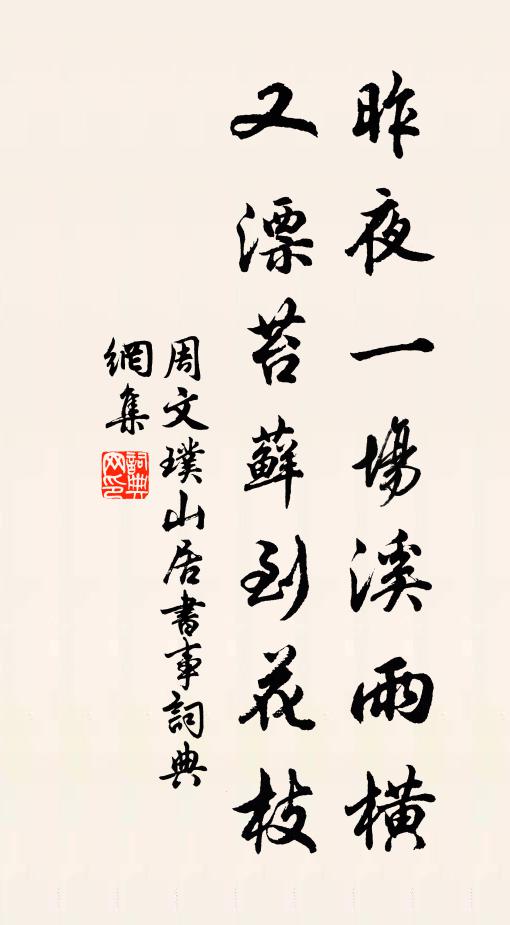 昨夜一場溪雨橫
又漂苔蘚到花枝
周文璞山居書事詞典
網集
詞典網印